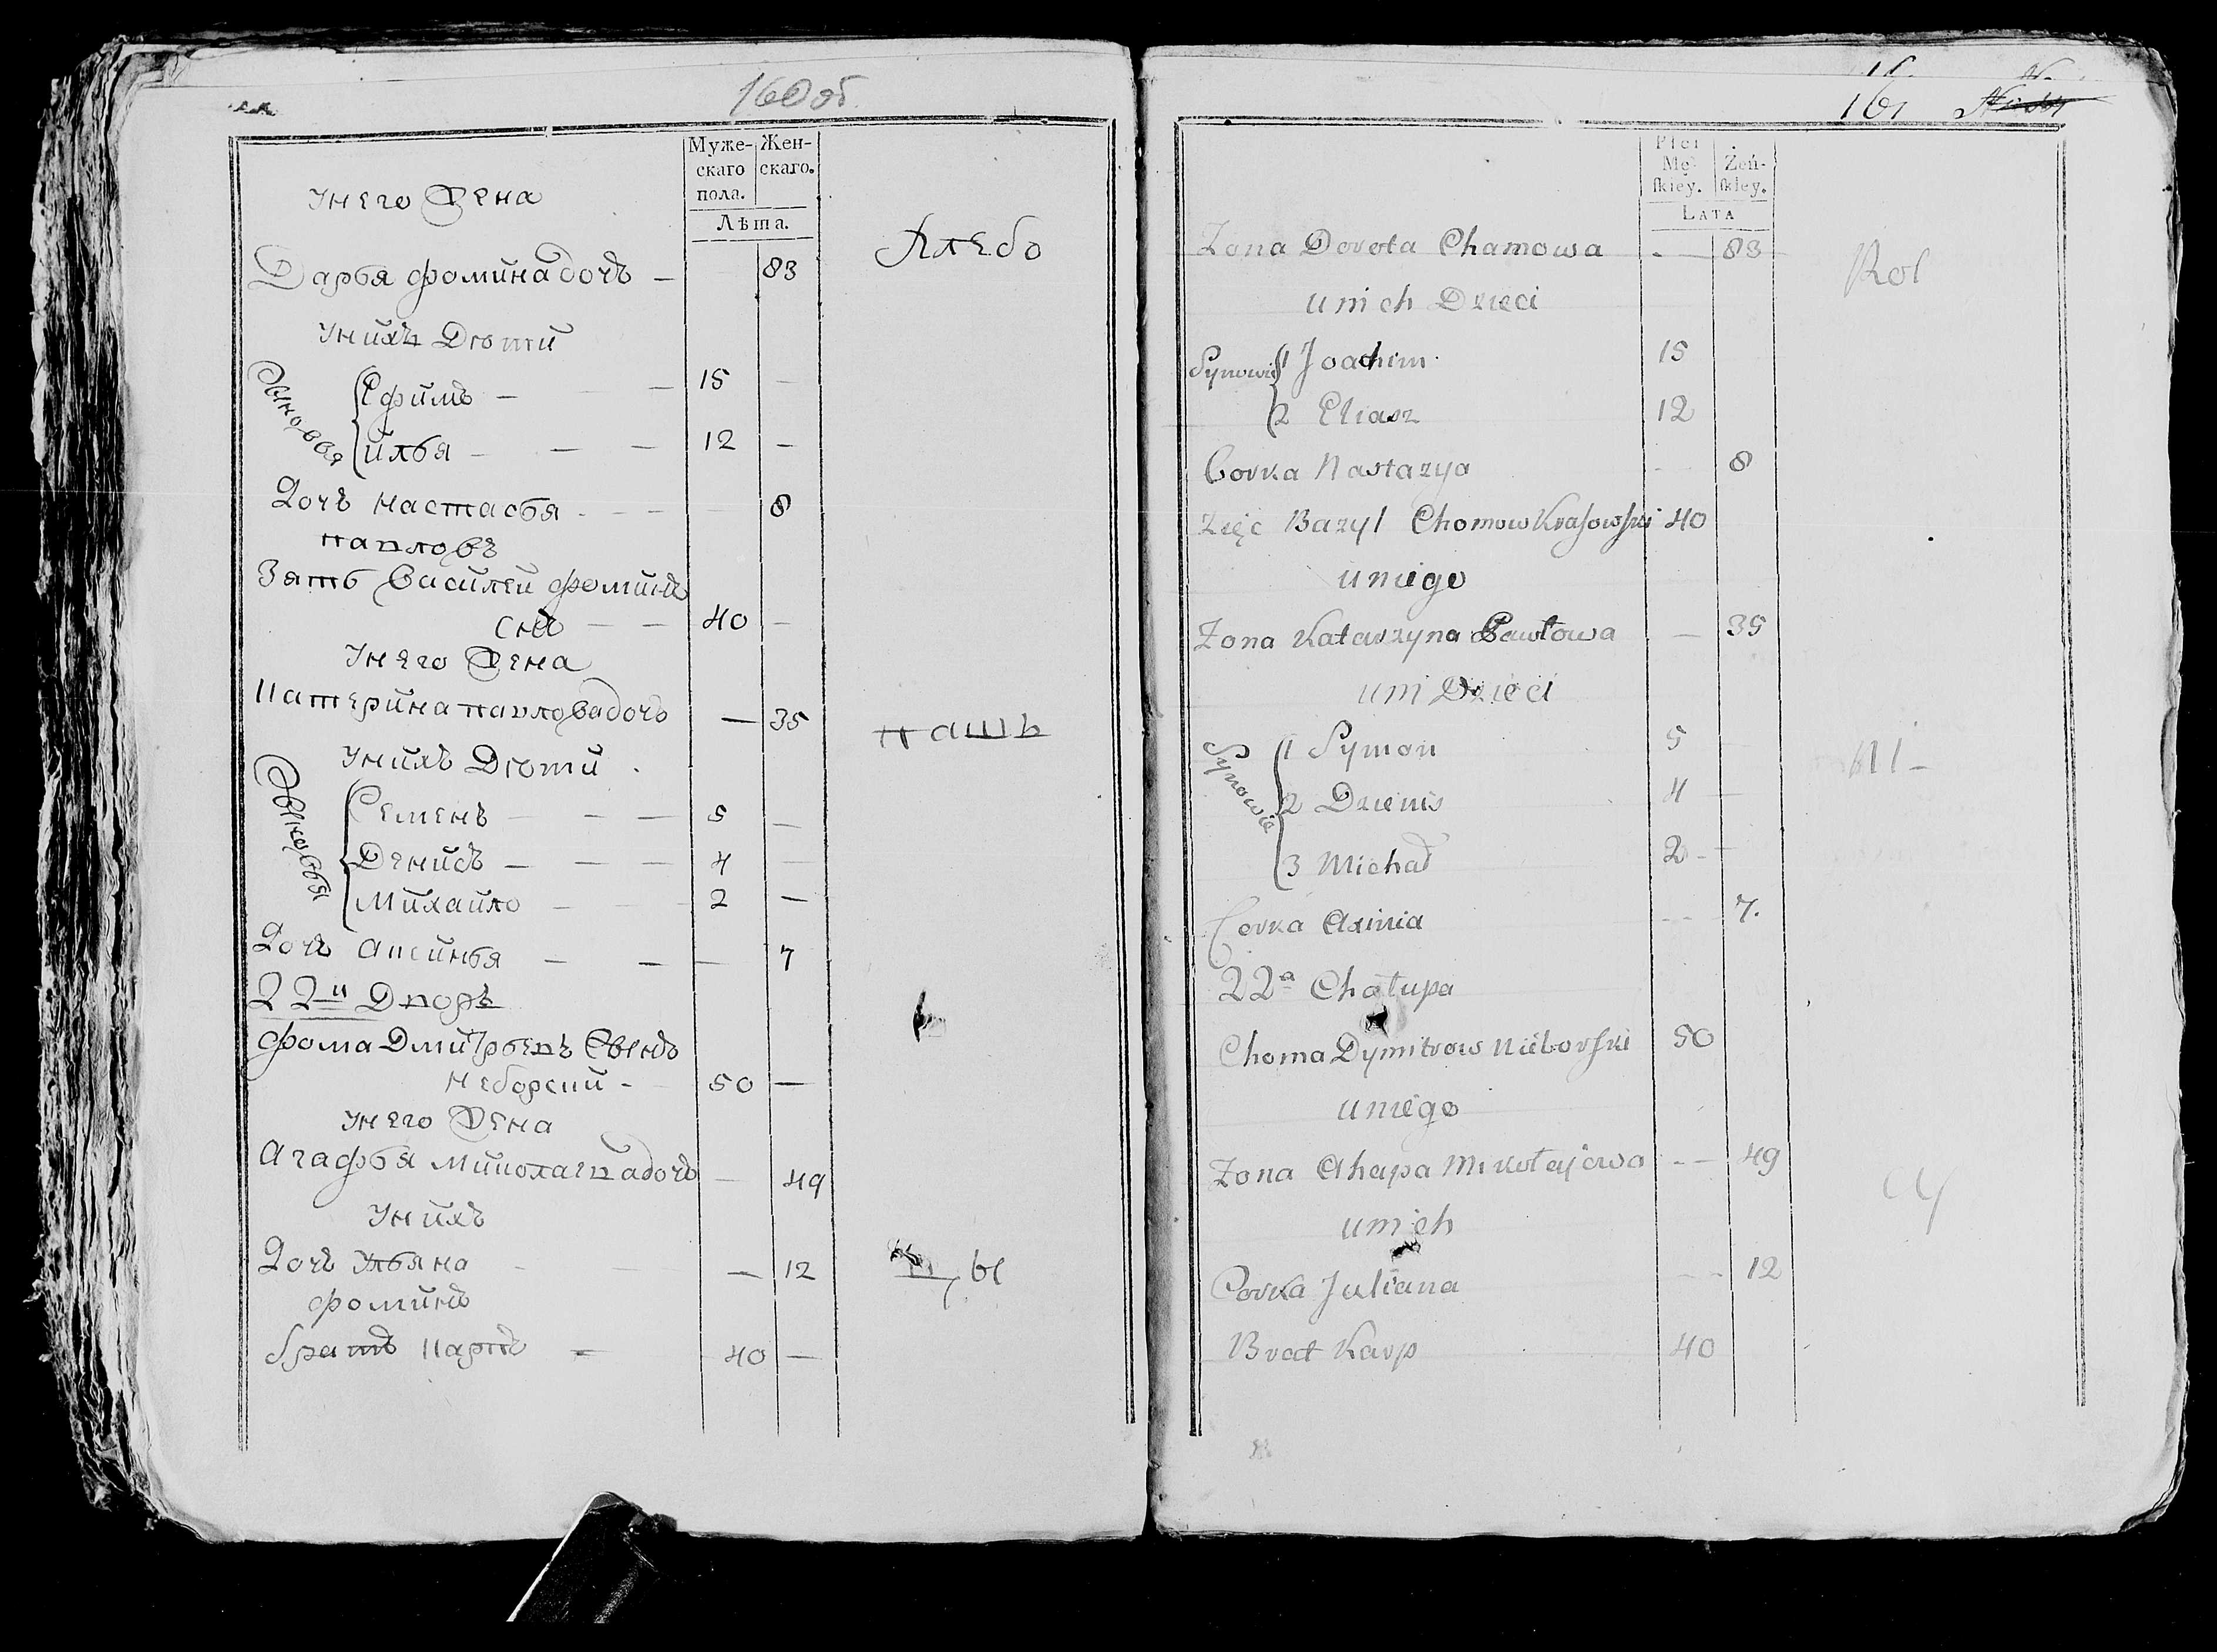 160 об.
Муже- Жен-
скаго скаго.
пола.
Лѣта.
Унего Жена
Дарья фомина дочъ — 83
Хлебо
Унихъ Дѣти
Сыновья
Ефимъ — — — 15 —
илья — — — 12 —
Дочъ настасья — — — 8
павловъ
Зять Василей фоминъ
снъ — — 40 —
Унего Жена
Катерина павлова дочъ — 35
пашъ
Унихъ Дѣти
Сыновья
Семенъ — — — 5 —
Денисъ — — — 4 —
Михайло — — — 2 —
Дочъ Аксинья — — — 7
22й Дворъ
фома Дмитрьевъ Сынъ
Неборский — 50 —
Унего Жена
Агафья Миколаевадочъ — 49
Унихъ
Дочъ Ульяна — — — 12
цы
фоминъ
братъ Карпъ — 40 —
161
Płci
Mę- Żeń-
skiey. skiey.
LATA
Zona Dorota Chamowa — 83
Rol
unich Dzieci
Synowie
1 Joachim 15
2 Eliasz 12
Corka Nastazya — 8
Zięć Bazyl Chomow Krasowski 40
uniego
Zona Katarzyna Pawłowa — 35
uni Dzieci
Synowie
1 Symon 5
ni —
2 Dzienis 4 —
3 Michał 2 —
Corka Axinia — 7.
22a Chałupa
Choma Dymitrow Nieborski 50
uniego
Zona Ahapa Mikołajowa — 49
cy
unich
Corka Juliana — 12
Brat Karp 40